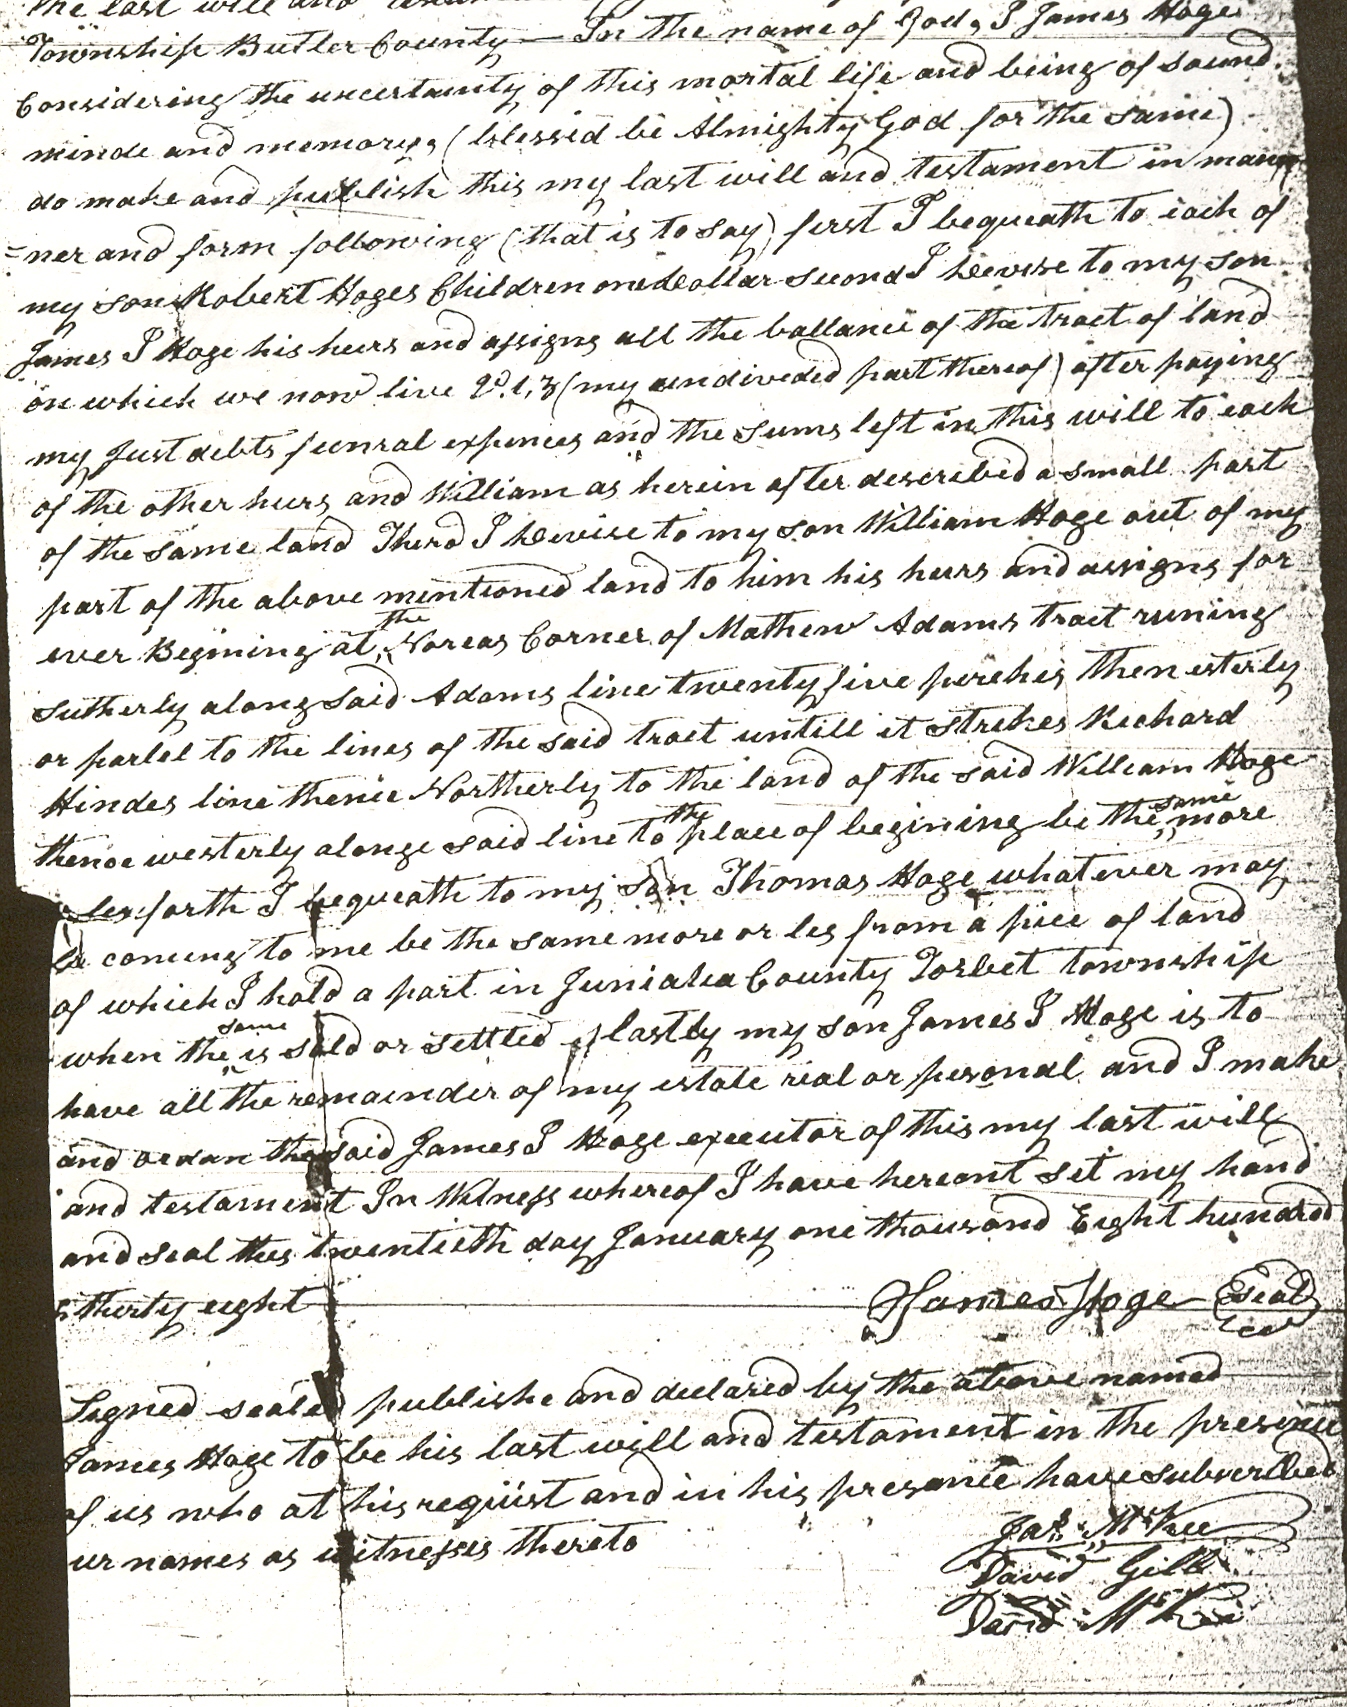 the last will and
Township Butler County — In the name of God, I James Hoge
Considering the uncertainty of this mortal life and being of sound
minde and memory, (blessid be Almighty God for the same)
do make and publish this my last will and testament in man
=ner and form following (that is to say) first I bequeath to each of
my son Robert Hoges Children one dollar second I devise to my son
James I Hoge his heirs and assigns all the ballance of the tract of land
on which we now live (my undivided part thereof) after paying
my Just debts funral expences and the sums left in this will to each
of the other heirs, and William as herein after described a small part
of the same land Third I devise to my son William Hoge out of my
part of the above mentioned land to him his heirs and assigns for
ever Begining at the Noreas Corner of Mathew Adams tract runing
sutherly along said Adams line twenty five perches then esterly
or parlel to the lines of the said tract untill it strikes Richard
Hindes line thence Northerly to the land of the said William Hoge
thence westerly alonge said line to the place of begining be the same more
les forth I bequeath to my son Thomas Hoge whatever may
be coming to me be the same more or les from a piece of land
of which I hold a part in Juniata County Torbet township
when the same is sold or settled lastly my son James I Hoge is to
have all the remainder of my estate real or pesonal and I make
and ordan the said James I Hoge executor of this my last will
and testament In Witness whereof I have hereont set my hand
and seal this twentieth day January one thousand Eight hundred
& thirty eight James Hoge Seal
Signed sealed publishe and declared by the above named
James Hoge to be his last will and testament in the presence
of us who at his requist and in his presance have subscribed
ur names as witnesses thereto
Jas. McKee
David Gill
David McKee